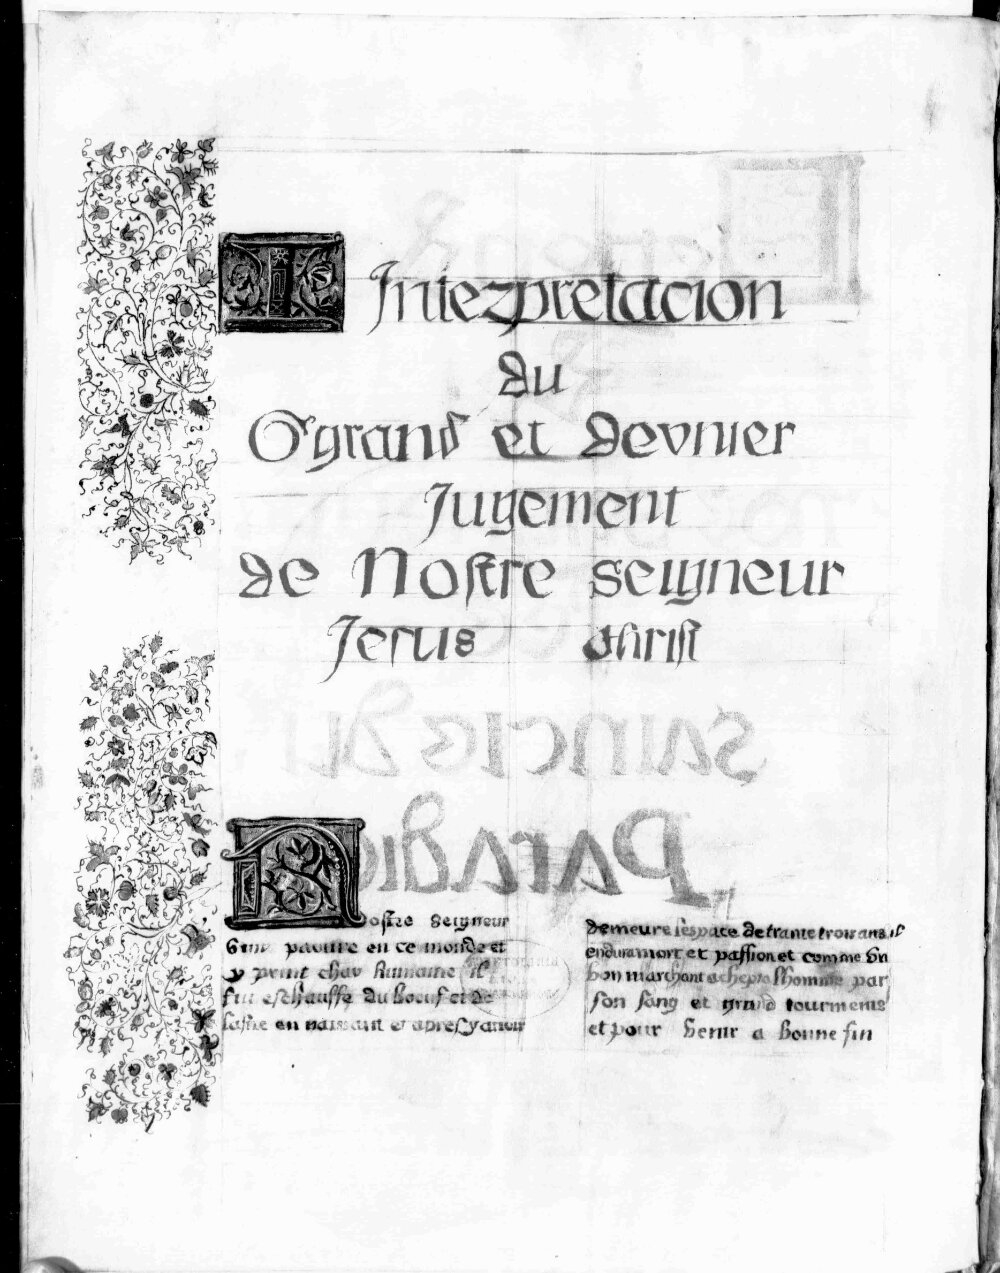 I Interpretacion
du
grand et dernier
Jugement
de Nostre seigneur
Jesus christ
Nostre seigneur
vint pauvre en ce monde et
y print chair humaine il
fut eschauffe du boeuf et de
lasne en naissant et apres y avoir
demeure lespace de trante trois ans il
endura mort et passion et comme un
bon marchant achepta lhomme par
son sang et grand tourmens
et pour venir a bonne fin